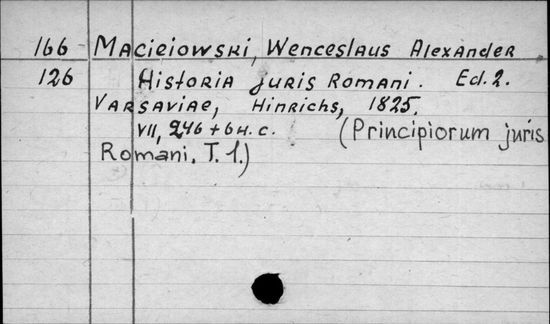 166 Macieiowski, Wenceslaus Alexander
126 Historia juris Romani. Ed. 2.
Varsaviae, Hinrichs, 1825.
VII, 246 + 6 н. с. (Principiorum juris
Romani. T. 1.)